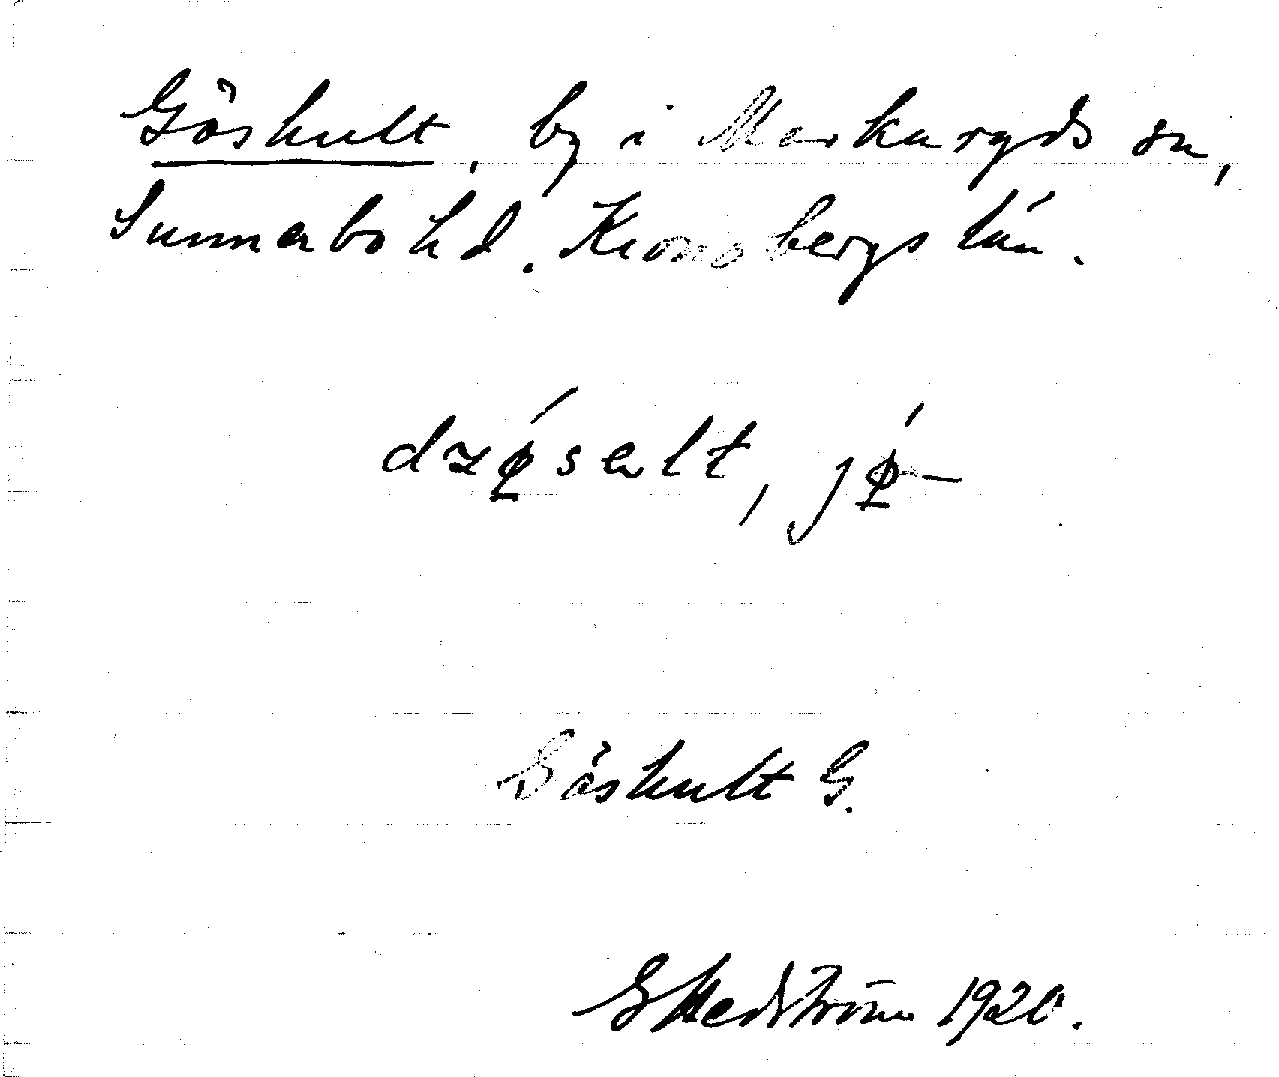 Göshult, by i Markaryds sn,
Sunnerbo hd. Kronobergs län.
Göshult G.
G Hedström 1920.